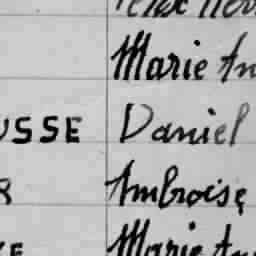 Marie An
USSE Daniel
Ambroise
Marie An